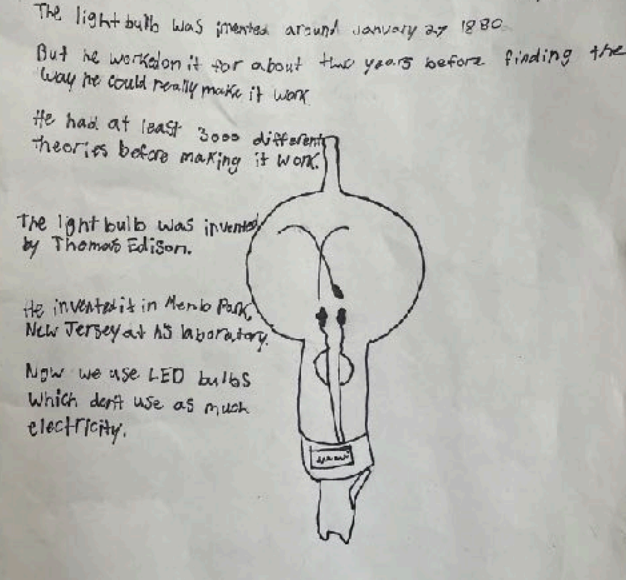 The light bulb was invented around January 27 1880
But he worked on it for about two years before finding the
way he could really make it work.
He had at least 3000 different
theories before making it work.
The light bulb was invented
by Thomas Edison.
He invented it in Menlo Park,
New Jersey at his laboratory.
Now we use LED bulbs
which don't use as much
electricity.